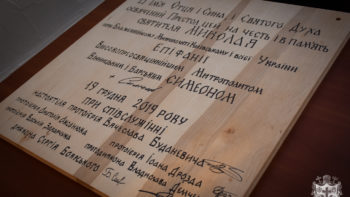 В Імя Отця і Сина, і Святого Духа
освячений Престол цей на честь і в память
святителя МИКОЛАЯ
при Блаженнійшому Митрополиті Київському і всієї України
ЕПІФАНІЇ
Високопреосвященнійшим Митрополитом
Вінницьким і Барським СИМЕОНОМ
19 ГРУДНЯ 2019 РОКУ
ПРИ СПІВСЛУЖІННІ
настоятеля протоієрея Вячеслава Будановича
протоієрея Іоана Дрозда
протодиякона Владислава
диякона Сергія